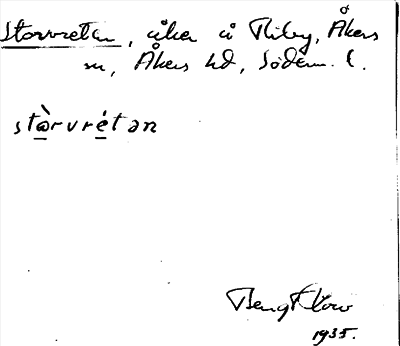 Storvretan, åker å Riby, Åkers
sn, Åkers hd, Söderm. l.
stàrvrétan
Bengt
1935.